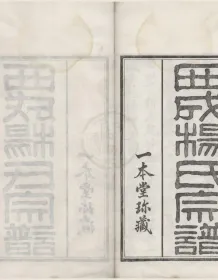 西成楊氏宗譜
一本堂珍藏